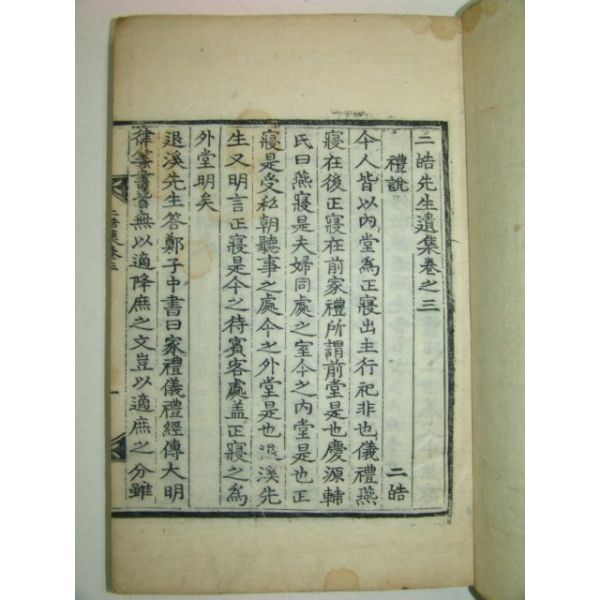 二皓先生遺集卷之三
禮說 二皓
今人皆以內堂爲正寢出主行祀非也儀禮燕
寢在後正寢在前家禮所謂前堂是也慶源輔
氏曰燕寢是夫婦同處之室今之內堂是也正
寢是受私朝聽事之處今之外堂是也退溪先
生又明言正寢是今之待賓客處盖正寢之爲
外堂明矣
退溪先生答鄭子中書曰家禮儀禮經傳大明
律等書皆無以適降庶之文豈以適庶之分雖
二皓集卷三